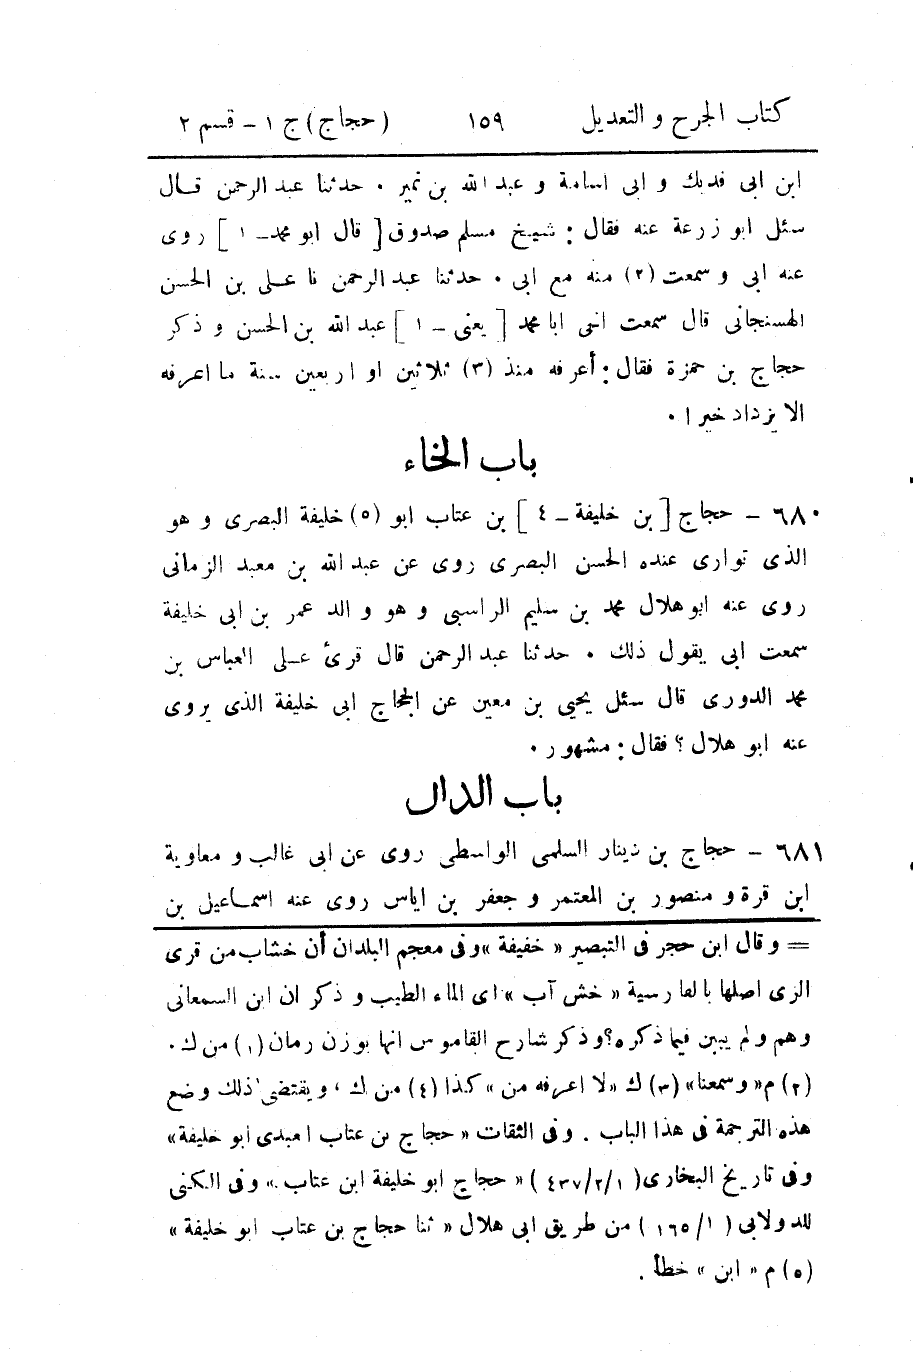 كتاب الجرح و التعديل ١٥٩ (حجاج) ج ١ - قسم ٢
ابن ابى فديك و ابى اسامة و عبد الله بن نمير . حدثنا عبد الرحمن قال
سئل ابو زرعة عنه فقال : شيخ مسلم صدوق [ قال ابو محمد - ١ ] روى
عنه ابى و سمعت (٢) منه مع ابى . حدثنا عبد الرحمن نا على بن الحسن
الهسنجانى قال سمعت اخى ابا محمد [ يعنى - ١ ] عبد الله بن الحسن و ذكر
حجاج بن حمزة فقال : أعرفه منذ (٣) ثلاثين او اربعين سنة ما اعرفه
الا يزداد خيرا .
باب الخاء
٦٨٠ - حجاج [ بن خليفة - ٤ ] بن عتاب ابو (٥) خليفة البصرى و هو
الذى توارى عنده الحسن البصرى روى عن عبد الله بن معبد الزمانى
روى عنه ابو هلال محمد بن سليم الراسبى و هو والد عمر بن ابى خليفة
سمعت ابى يقول ذلك . حدثنا عبد الرحمن قال قرئ على العباس بن
محمد الدورى قال سئل يحيى بن معين عن الحجاج ابى خليفة الذى يروى
عنه ابو هلال ؟ فقال : مشهور .
باب الدال
٦٨١ - حجاج بن دينار السلمى الواسطى روى عن ابى غالب و معاوية
ابن قرة و منصور بن المعتمر و جعفر بن اياس روى عنه اسماعيل بن
= و قال ابن حجر فى التبصير « خفيفة » وفى معجم البلدان أن خشاب من قرى
الرى اصلها بالفارسية « خش آب » اى الماء الطيب و ذكر ان ابن السمعانى
وهم و لم يبين فيما ذكره ؟ وذكر شارح القاموس انها بوزن رمان (١) من ك .
(٢) م « وسمعنا » (٣) ك « لا اعرفه من » كذا (٤) من ك ، ويقتضى ذلك وضع
هذه الترجمة فى هذا الباب . وفى الثقات « حجاج بن عتاب العبدى ابو خليفة »
وفى تاريخ البخارى ( ٤٣٧/٢/١ ) « حجاج ابو خليفة ابن عتاب . » وفى الكنى
للدولابى ( ١٦٥/١ ) من طريق ابى هلال « ثنا حجاج بن عتاب ابو خليفة »
(٥) م « ابن » خطأ .